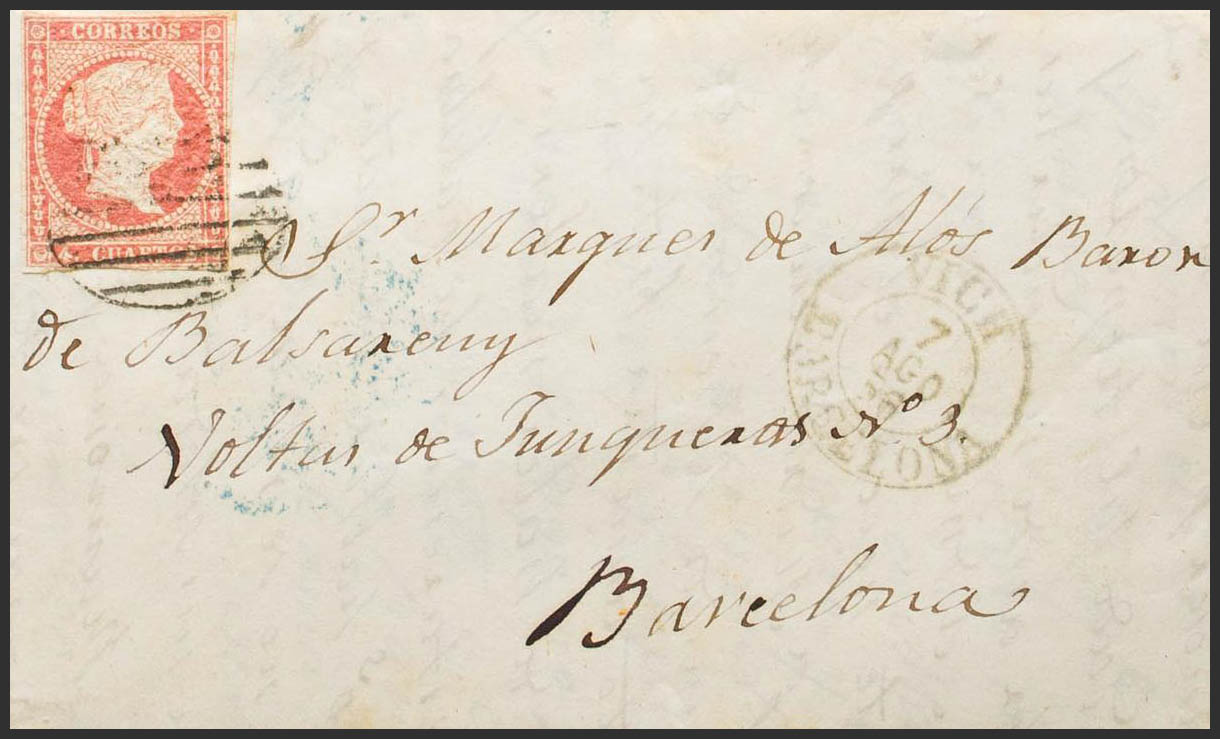 CORREOS
CUARTOS
Sr. Marques de Alós Baron
de Balsareny
Voltas de Junqueras Nº 3.
Barcelona
VICH
7
AG
BARCELONA